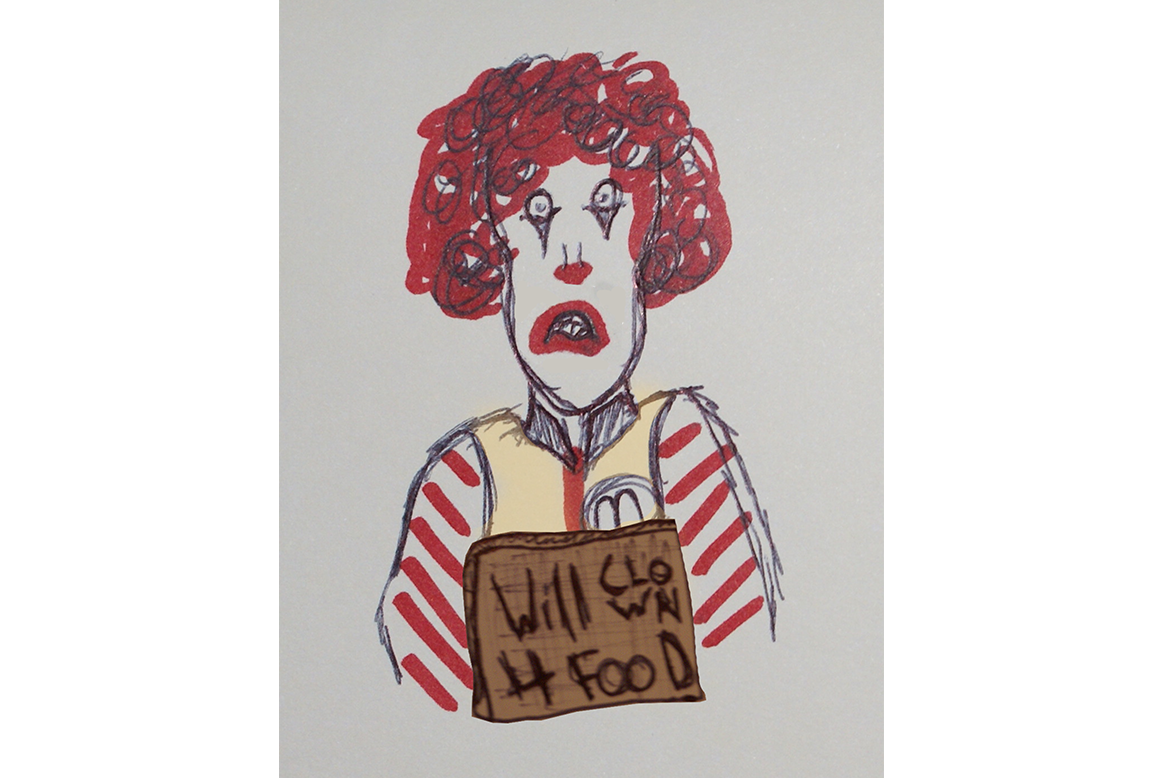 m
Will CLO
WN
4 FOOD